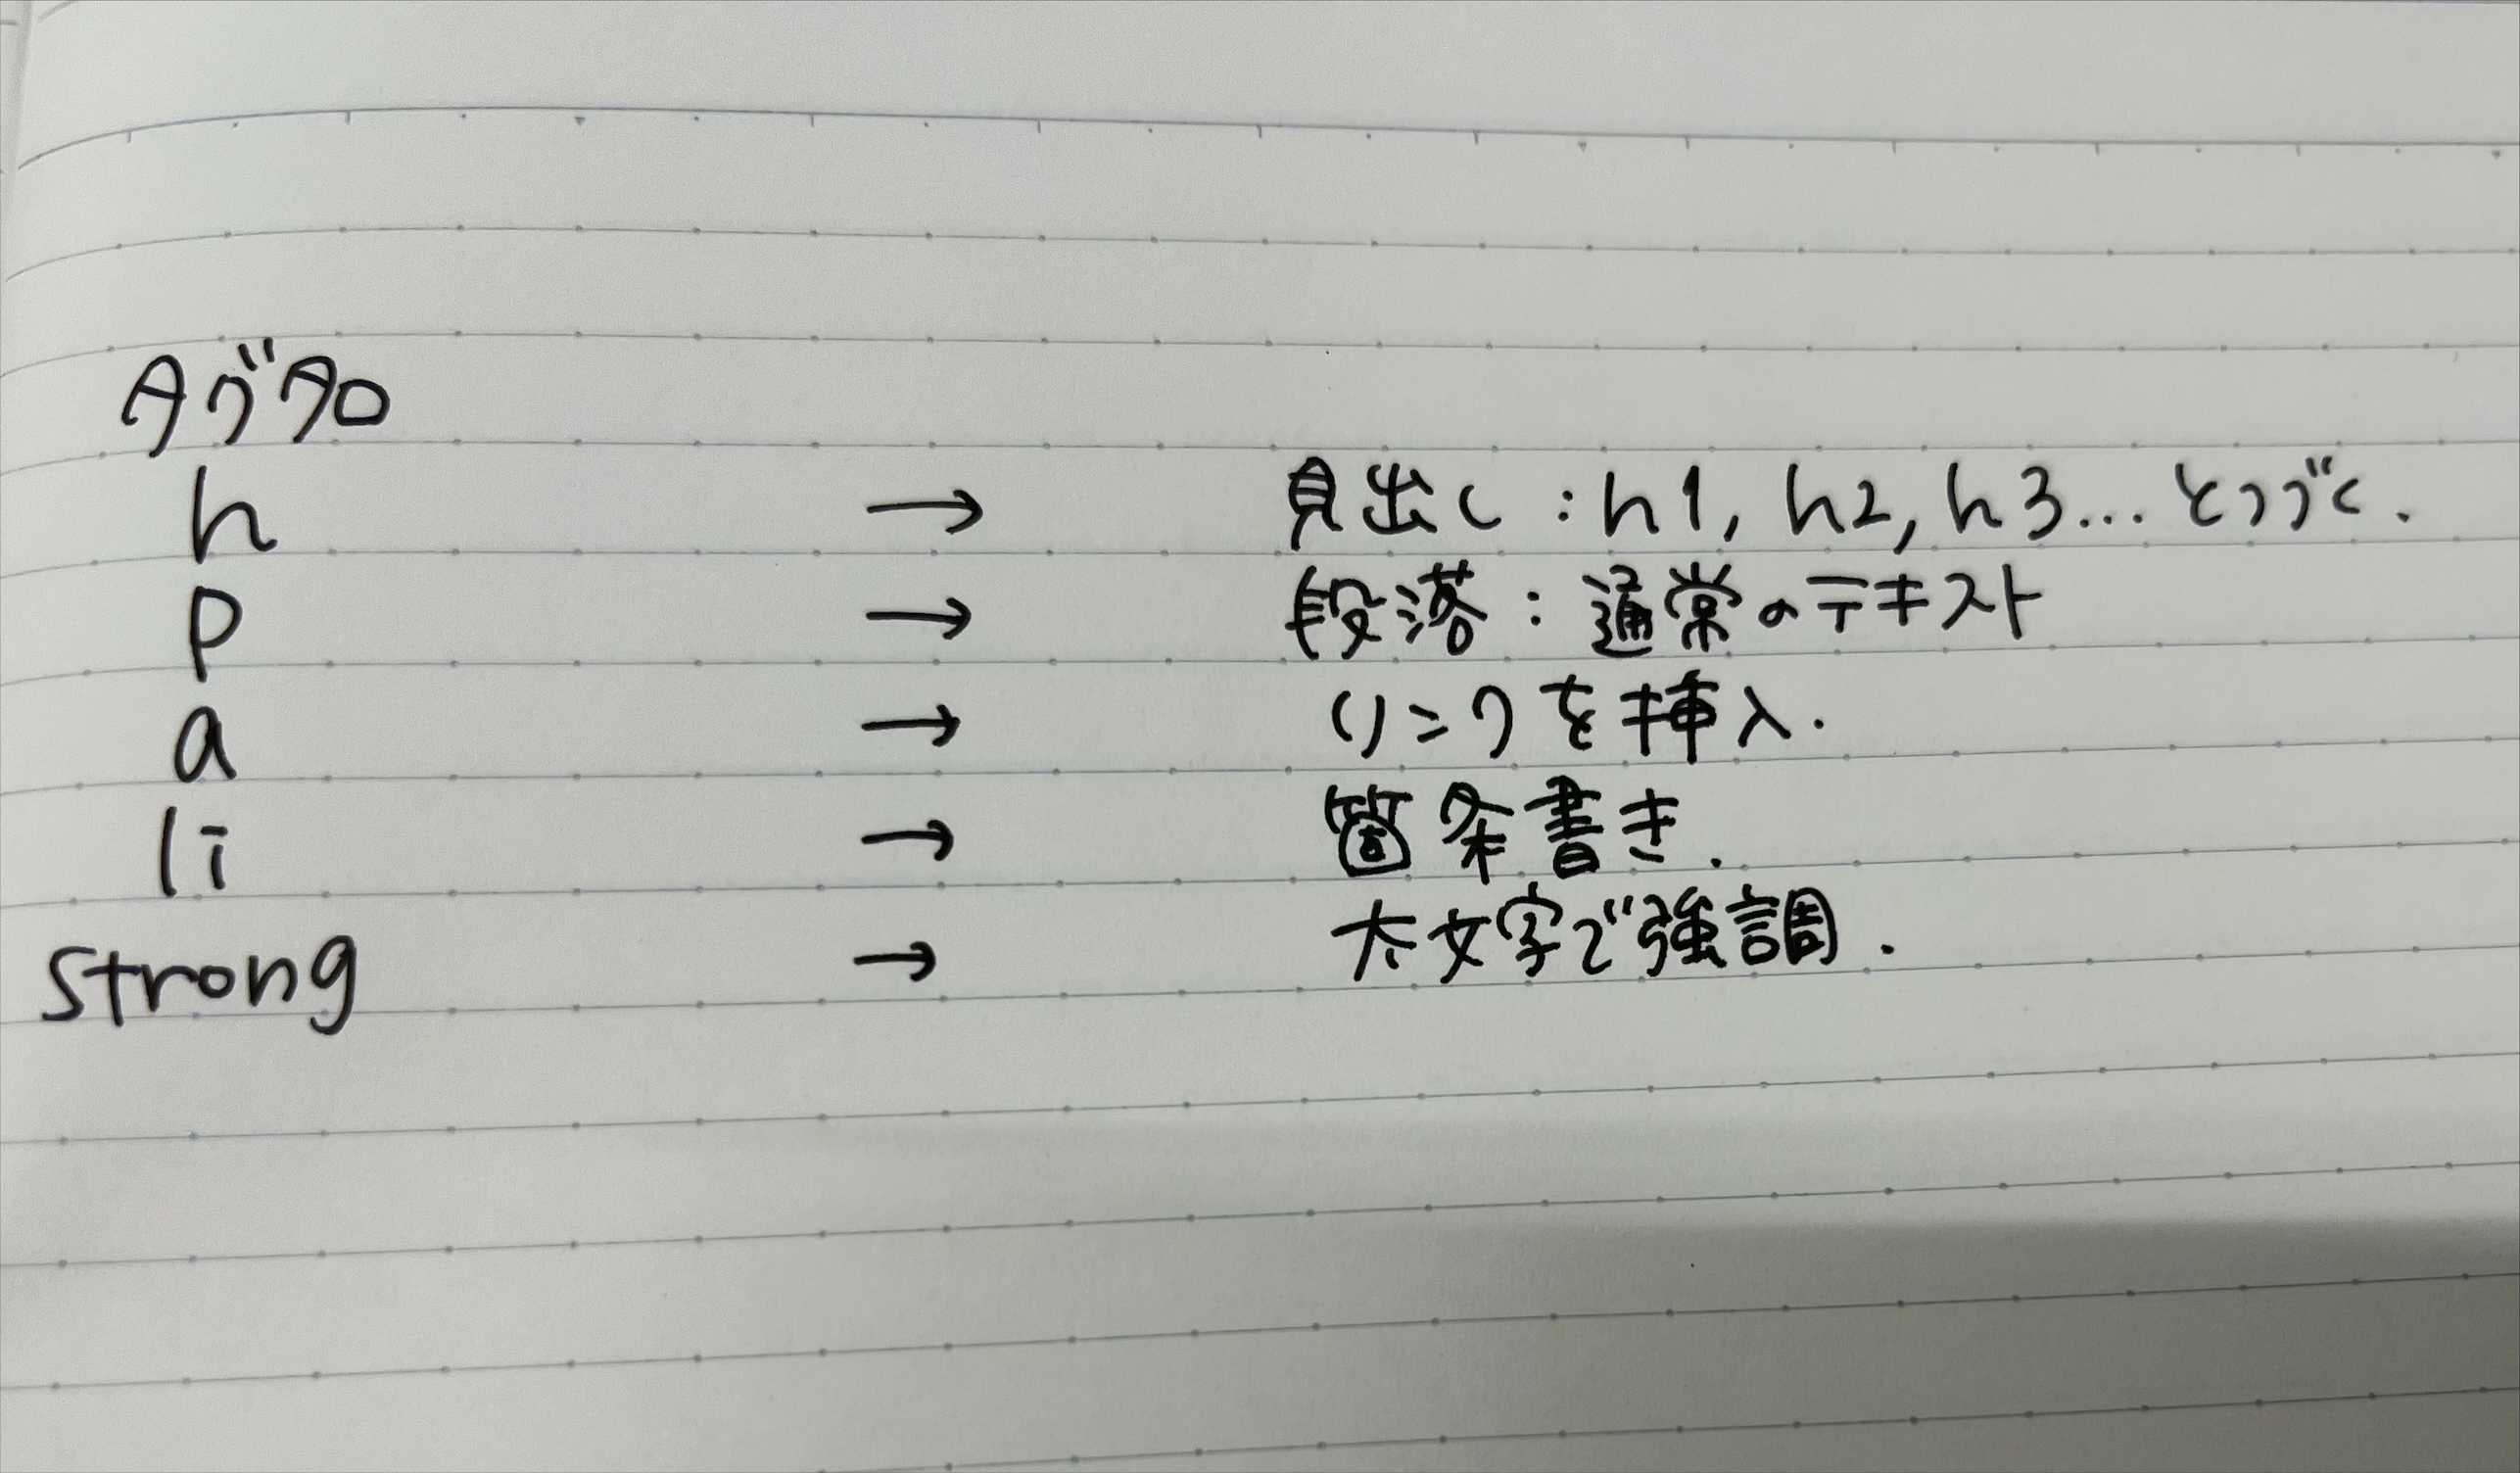 タグ名
h → 見出し：h1, h2, h3... とつづく.
p → 段落：通常のテキスト
a → リンクを挿入.
li → 箇条書き.
strong → 太文字で強調.